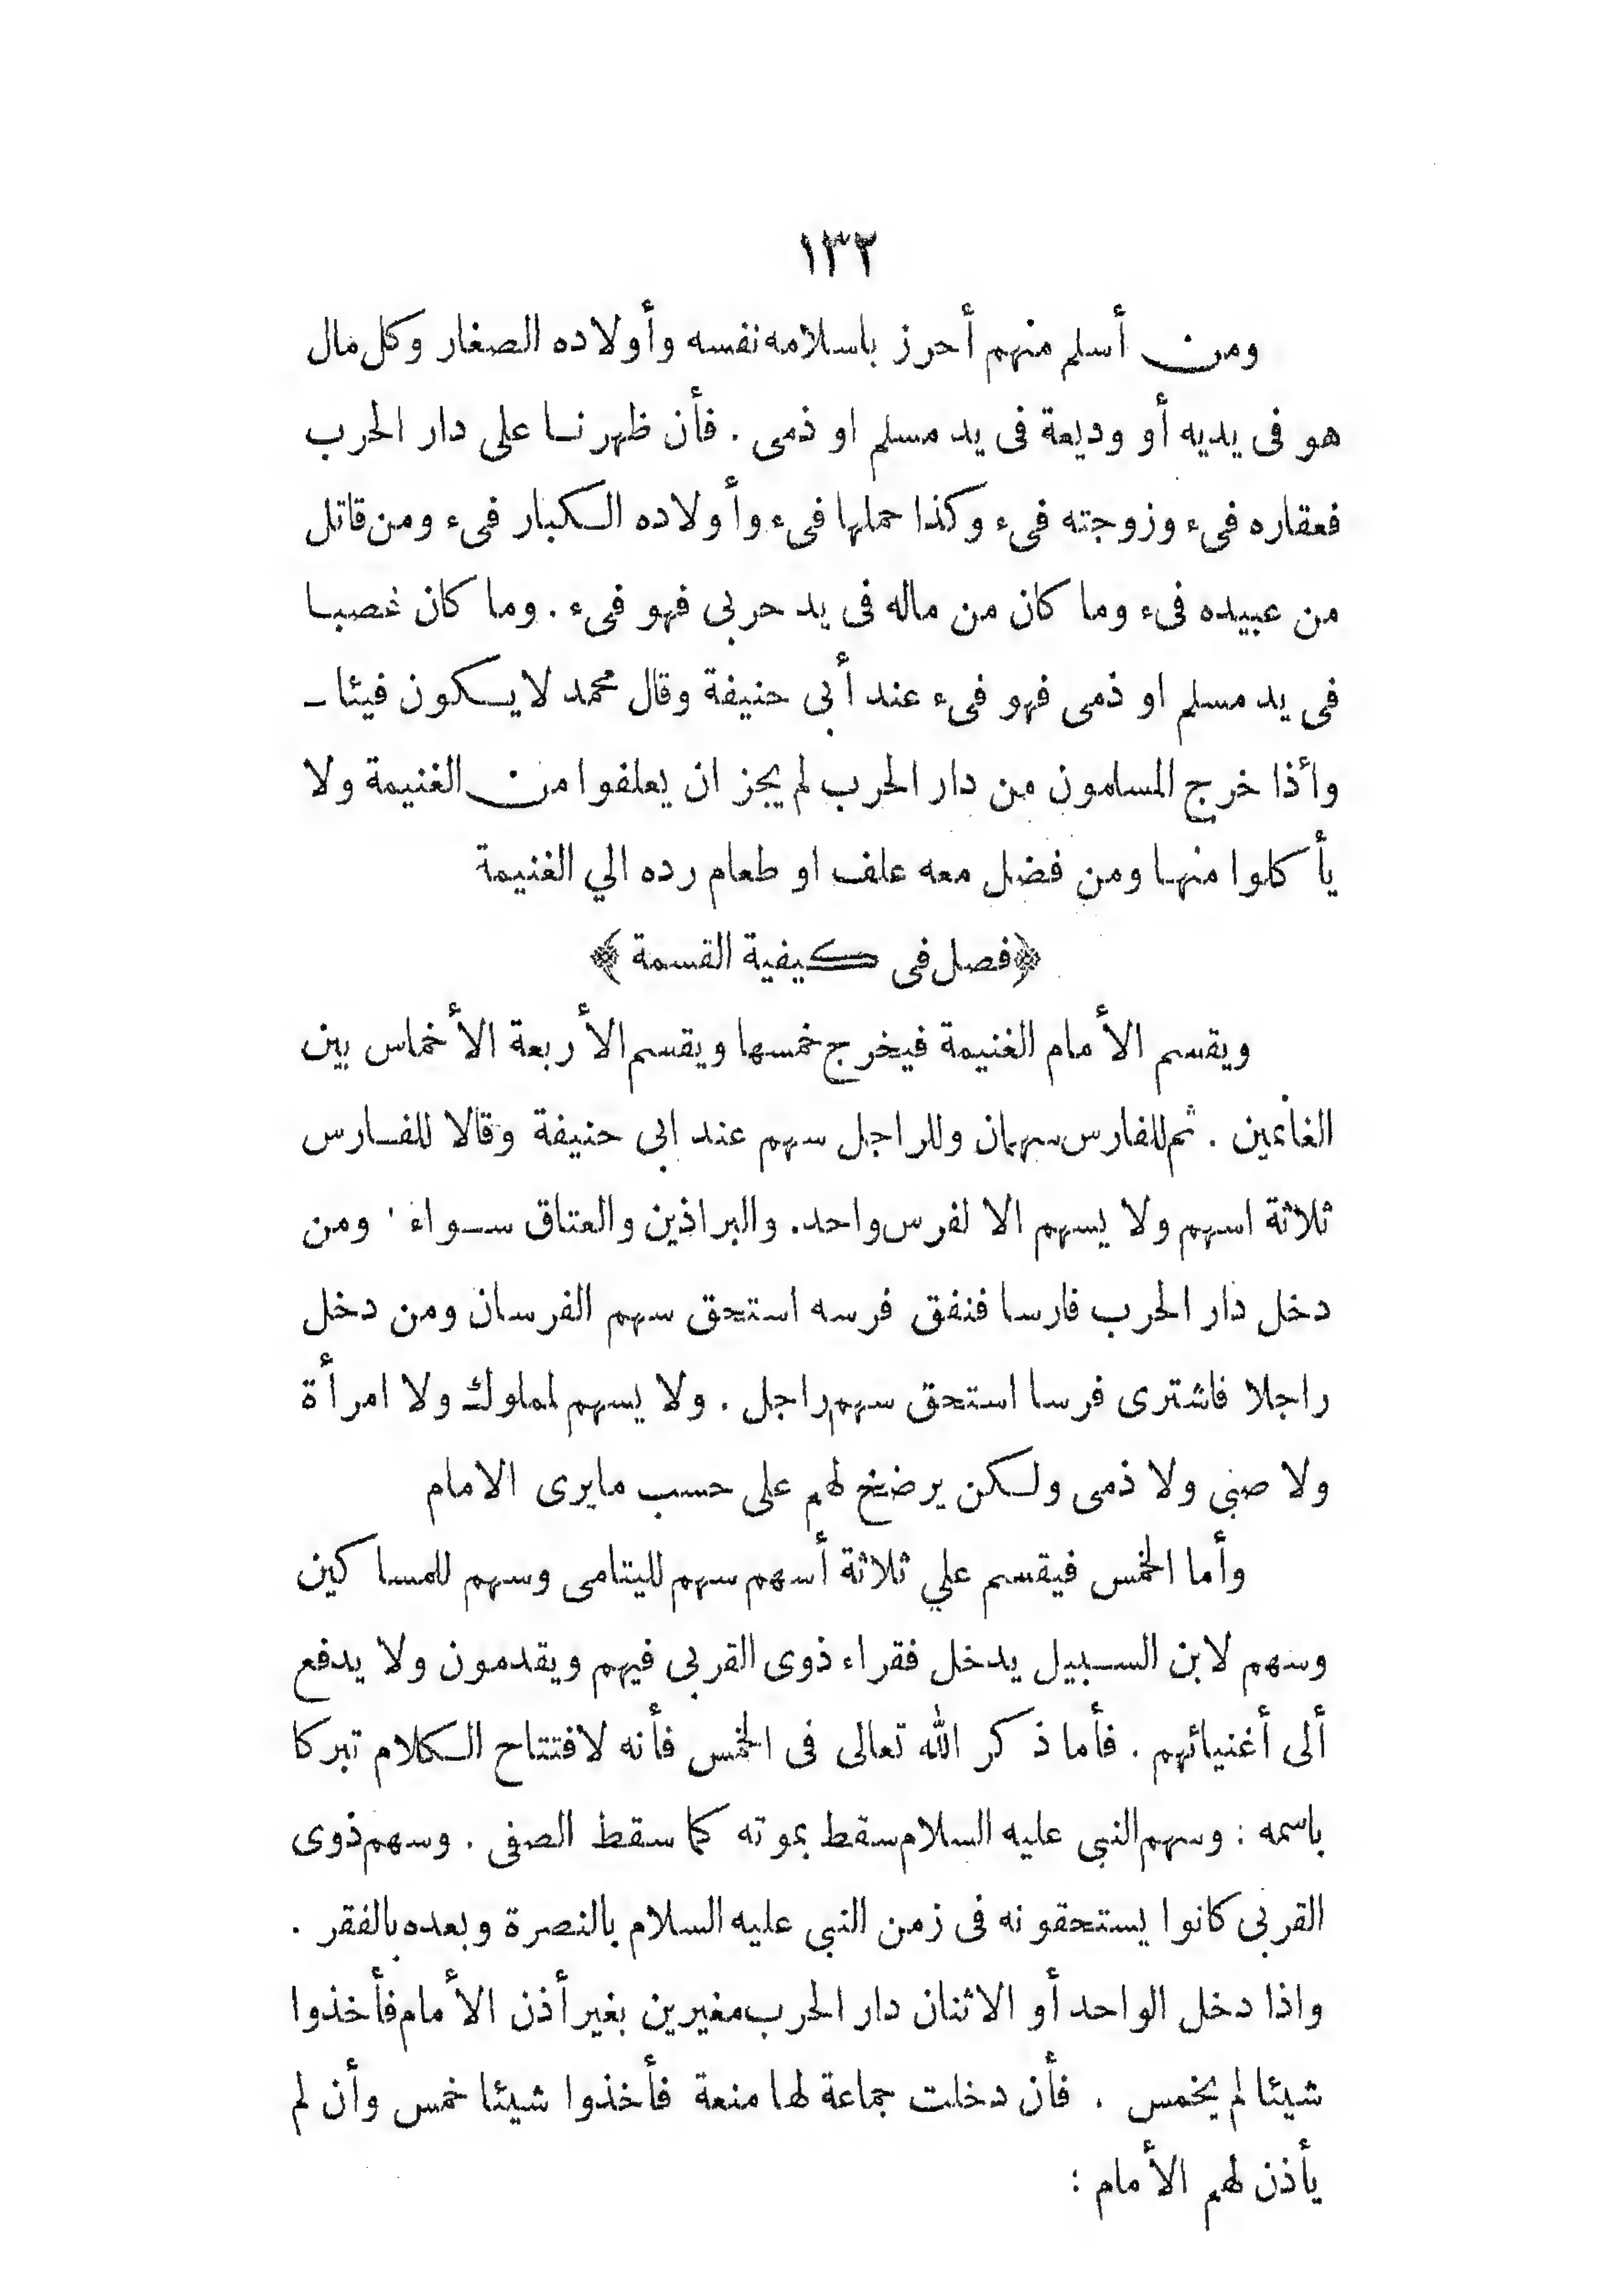 ١٣٢
ومن أسلم منهم أحرز باسلامه نفسه وأولاده الصغار وكل مال
هو فى يديه أو وديعة فى يد مسلم او ذمى . فأن ظهرنا على دار الحرب
فعقاره فىء وزوجته فىء وكذا حملها فىء وأولاده الكبار فىء ومن قاتل
من عبيده فىء وما كان من ماله فى يد حربى فهو فىء . وما كان غصبا
فى يد مسلم او ذمى فهو فىء عند أبى حنيفة وقال محمد لا يكون فيئا ـ
وأذا خرج المسلمون من دار الحرب لم يجز ان يعلفوا من الغنيمة ولا
يأكلوا منها ومن فضل معه علف او طعام رده الي الغنيمة
﴿فصل فى كيفية القسمة﴾
ويقسم الأمام الغنيمة فيخرج خمسها ويقسم الأربعة الأخماس بين
الغانمين . ثم للفارس سهمان وللراجل سهم عند ابى حنيفة وقالا للفارس
ثلاثة اسهم ولا يسهم الا لفرس واحد. والبراذين والعتاق سواء ' ومن
دخل دار الحرب فارسا فنفق فرسه استحق سهم الفرسان ومن دخل
راجلا فاشترى فرسا استحق سهم راجل . ولا يسهم لمملوك ولا امرأة
ولا صبى ولا ذمى ولكن يرضخ لهم على حسب مايرى الامام
وأما الخمس فيقسم علي ثلاثة أسهم سهم لليتامى وسهم للمساكين
وسهم لابن السبيل يدخل فقراء ذوى القربى فيهم ويقدمون ولا يدفع
ألى أغنيائهم . فأما ذكر الله تعالى فى الخمس فأنه لافتتاح الكلام تبركا
باسمه : وسهم النبى عليه السلام سقط بموته كما سقط الصفى . وسهم ذوى
القربى كانوا يستحقونه فى زمن النبى عليه السلام بالنصرة وبعده بالفقر .
واذا دخل الواحد أو الاثنان دار الحرب مغيرين بغير أذن الأمام فأخذوا
شيئا لم يخمس . فأن دخلت جماعة لها منعة فأخذوا شيئا خمس وأن لم
يأذن لهم الأمام :